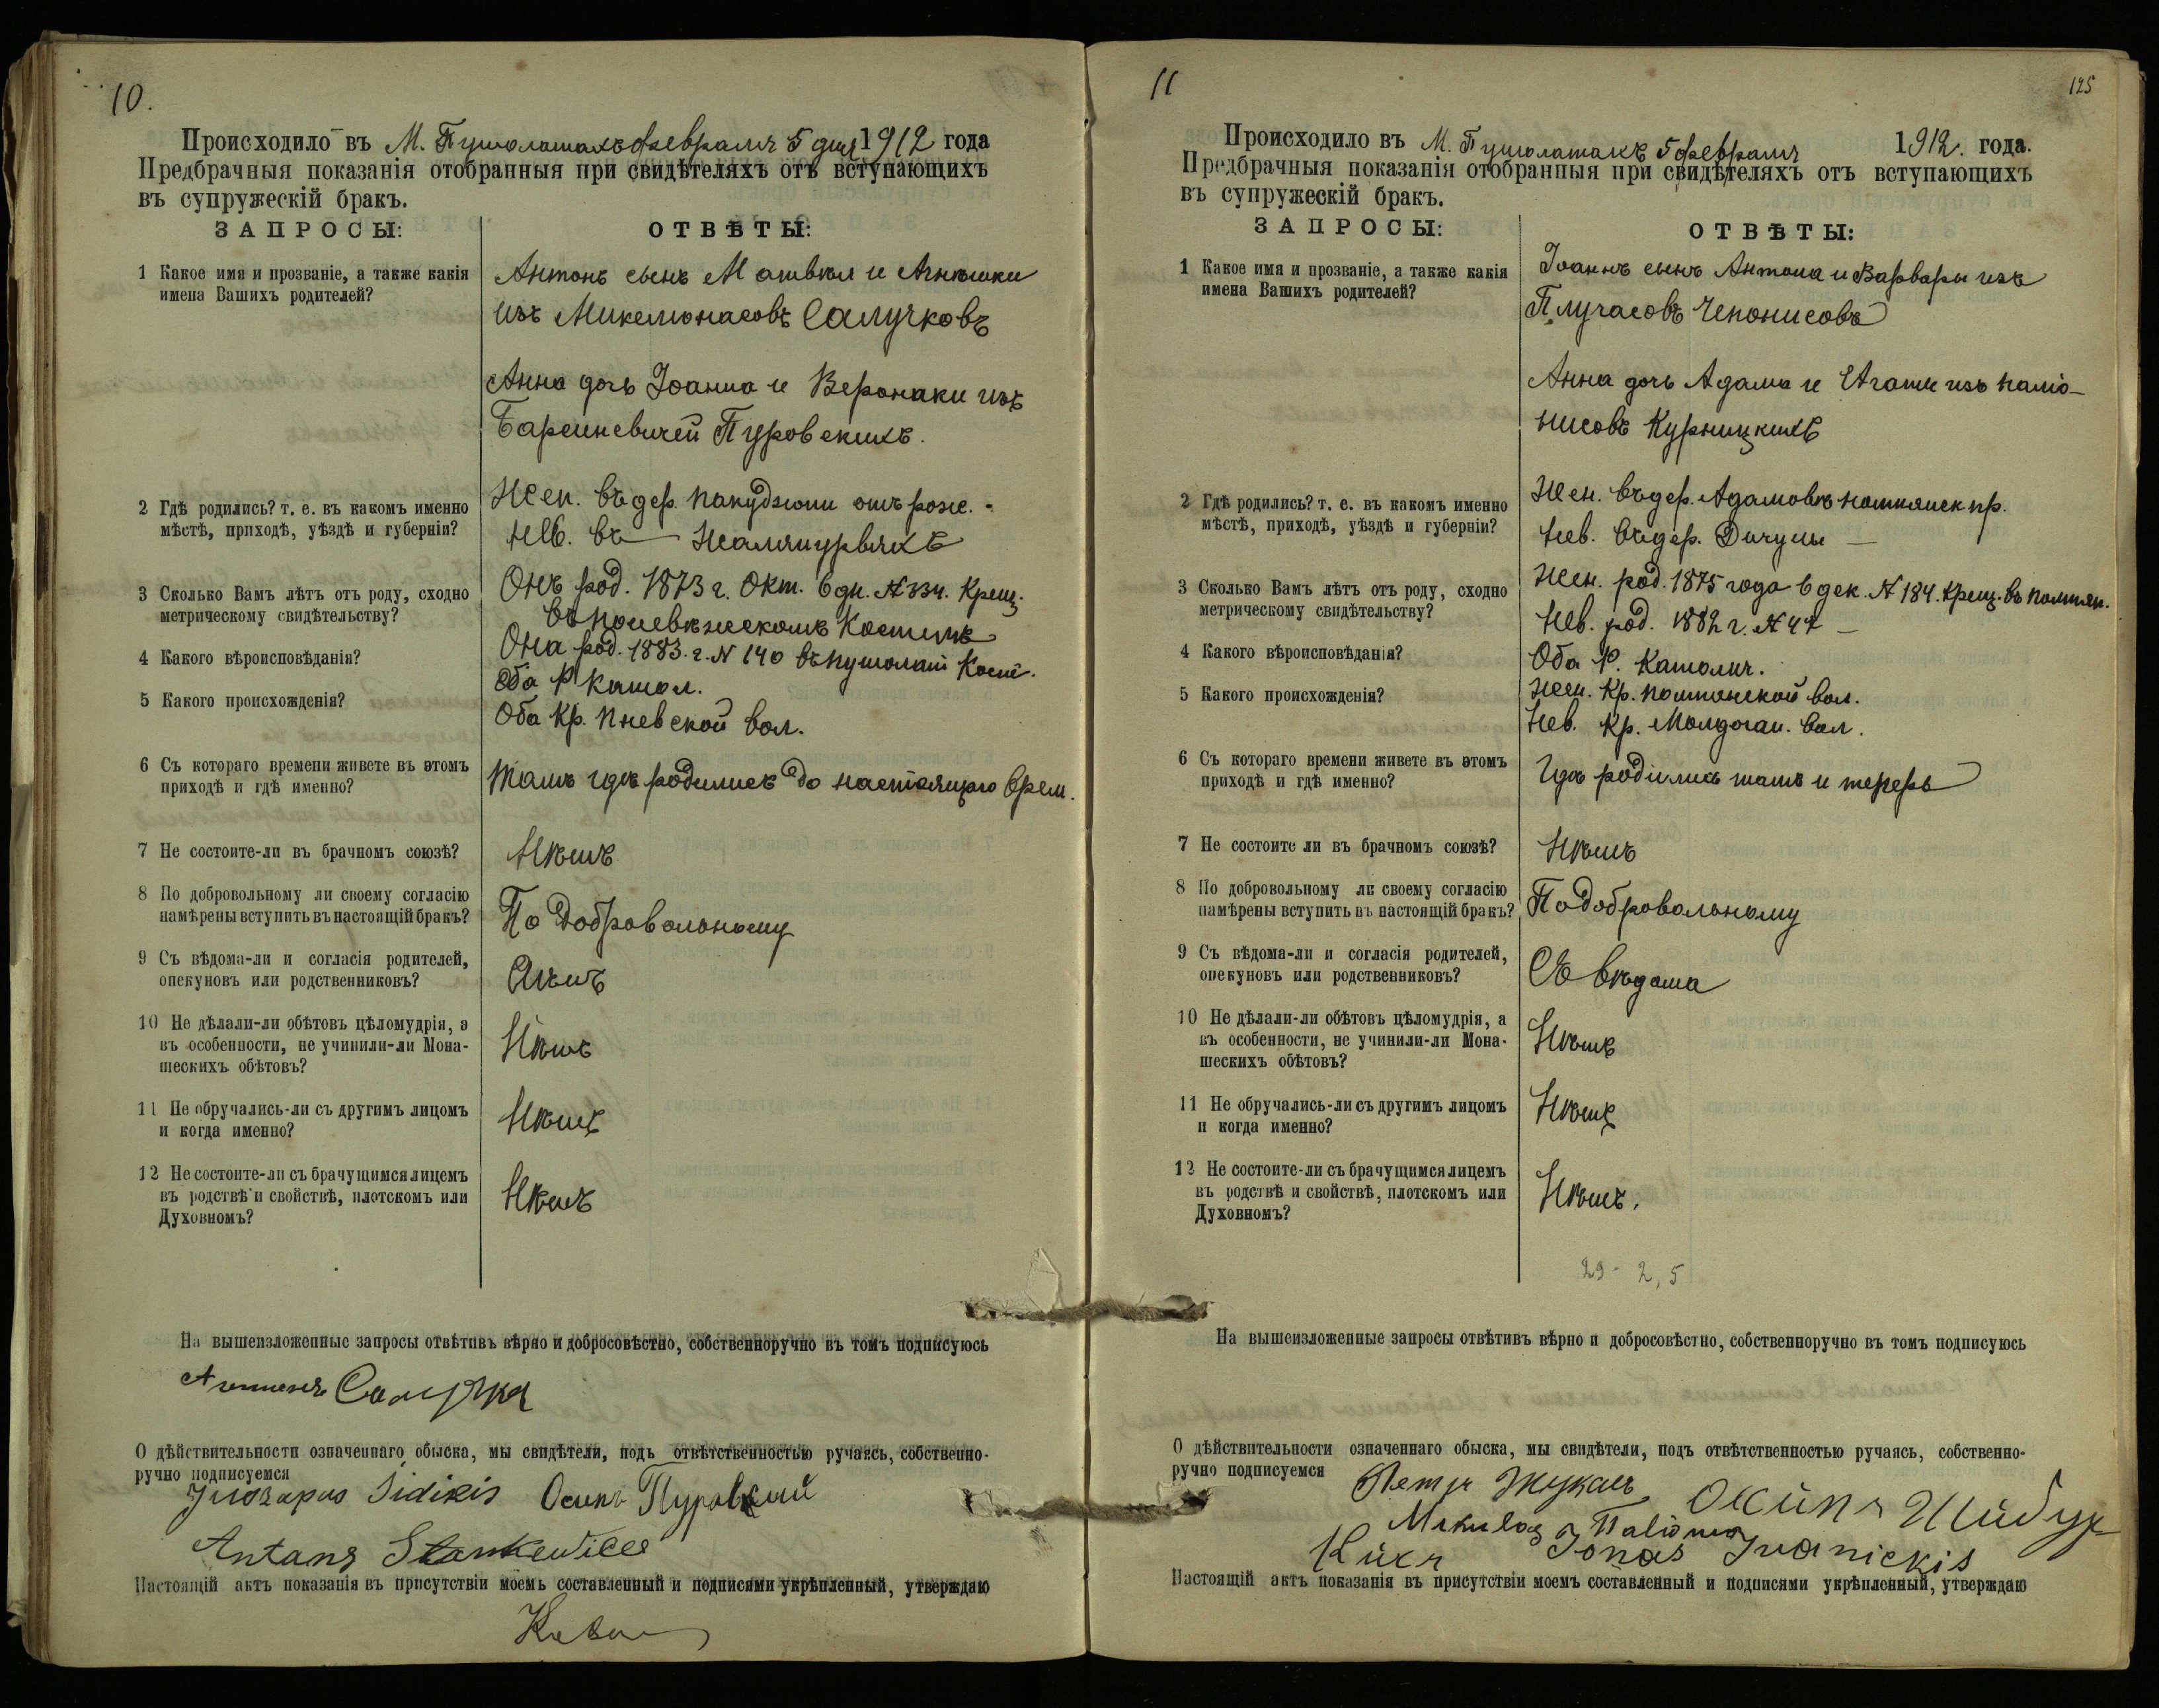 10.
Происходило въ М. Пушолатахъ февраля 5 дня 1912 года
Предбрачныя показанія отобранныя при свидѣтеляхъ отъ вступающихъ
въ супружескій бракъ.
ЗАПРОСЫ: ОТВѢТЫ:
1 Какое имя и прозваніе, а также какія
имена Вашихъ родителей?
Антонъ сынъ Матвѣя и Агнешки
изъ Микелюнасовъ Салучковъ
Анна дочь Іоанна и Вероники изъ
Барсиневичей Пуровскихъ.
2 Гдѣ родились? т. е. въ какомъ именно
мѣстѣ, приходѣ, уѣздѣ и губерніи?
Жен. въ дер. Пакудзюпи отъ рож.
Нев. въ
3 Сколько Вамъ лѣтъ отъ роду, сходно
метрическому свидѣтельству?
Онъ род. 1873 г. Окт. 6 дн. № 334. Крещ.
въ Поневѣжескомъ Костелѣ
Она род. 1883 г. № 140 въ Пушолат Кост.
4 Какого вѣроисповѣданія?
Оба Р Катол.
5 Какого происхожденія?
Оба Кр. Пневской вол.
6 Съ котораго времени живете въ этомъ
приходѣ и гдѣ именно?
Тамъ гдѣ родились до настоящаго врем.
7 Не состоите-ли въ брачномъ союзѣ?
Нѣтъ
8 По добровольному ли своему согласію
намѣрены вступить въ настоящій бракъ?
По Добровольному
9 Съ вѣдома-ли и согласія родителей,
опекуновъ или родственниковъ?
10 Не дѣлали-ли обѣтовъ цѣломудрія, а
въ особенности, не учинили-ли Мона-
шескихъ обѣтовъ?
Нѣтъ
11 Не обручались-ли съ другимъ лицомъ
и когда именно?
Нѣтъ
12 Не состоите-ли съ брачущимся лицемъ
въ родствѣ и свойствѣ, плотскомъ или
Духовномъ?
Нѣтъ
На вышеизложенные запросы отвѣтивъ вѣрно и добросовѣстно, собственноручно въ томъ подписуюсь
Антонъ Салучка
О дѣйствительности означеннаго обыска, мы свидѣтели, подъ отвѣтственностью ручаясь, собственно-
ручно подписуемся
Sidikis Осипъ Пуровский
Antans Stankewice
Настоящій актъ показанія въ присутствіи моемъ составленный и подписями укрѣпленный, утверждаю
11
125
Происходило въ М. Пушолатахъ 5 февраля 1912. года.
Предбрачныя показанія отобранныя при свидѣтеляхъ отъ вступающихъ
въ супружескій бракъ.
ЗАПРОСЫ: ОТВѢТЫ:
1 Какое имя и прозваніе, а также какія
имена Вашихъ родителей?
Іоаннъ сынъ Антона и Варвары изъ
Плучасовъ Чепонисовъ
Анна дочь Адама и Агаты изъ Паліо-
нисовъ Курницкихъ
2 Гдѣ родились? т. е. въ какомъ именно
мѣстѣ, приходѣ, уѣздѣ и губерніи?
Жен. въ дер. Адамовкѣ пр.
Нев. въ дер. Дичуны —
3 Сколько Вамъ лѣтъ отъ роду, сходно
метрическому свидѣтельству?
Жен. род. 1875 года 6 дек. № 184. Крещ. въ
Нев. род. 1882 г. № 47 —
4 Какого вѣроисповѣданія?
Оба Р. Католич.
5 Какого происхожденія?
Жен. Кр. вол.
Нев. Кр. вол.
6 Съ котораго времени живете въ этомъ
приходѣ и гдѣ именно?
Гдѣ родились тамъ и теперь
7 Не состоите ли въ брачномъ союзѣ?
Нѣтъ
8 По добровольному ли своему согласію
намѣрены вступить въ настоящій бракъ?
По добровольному
9 Съ вѣдома-ли и согласія родителей,
опекуновъ или родственниковъ?
Съ вѣдома
10 Не дѣлали-ли обѣтовъ цѣломудрія, а
въ особенности, не учинили-ли Мона-
шескихъ обѣтовъ?
Нѣтъ
11 Не обручались-ли съ другимъ лицомъ
и когда именно?
Нѣтъ
12 Не состоите-ли съ брачущимся лицемъ
въ родствѣ и свойствѣ, плотскомъ или
Духовномъ?
Нѣтъ.
29 - 2,5
На вышеизложенные запросы отвѣтивъ вѣрно и добросовѣстно, собственноручно въ томъ подписуюсь
О дѣйствительности означеннаго обыска, мы свидѣтели, подъ отвѣтственностью ручаясь, собственно-
ручно подписуемся
Петръ Жукасъ
Jonas Ivanickis
Настоящій актъ показанія въ присутствіи моемъ составленный и подписями укрѣпленный, утверждаю